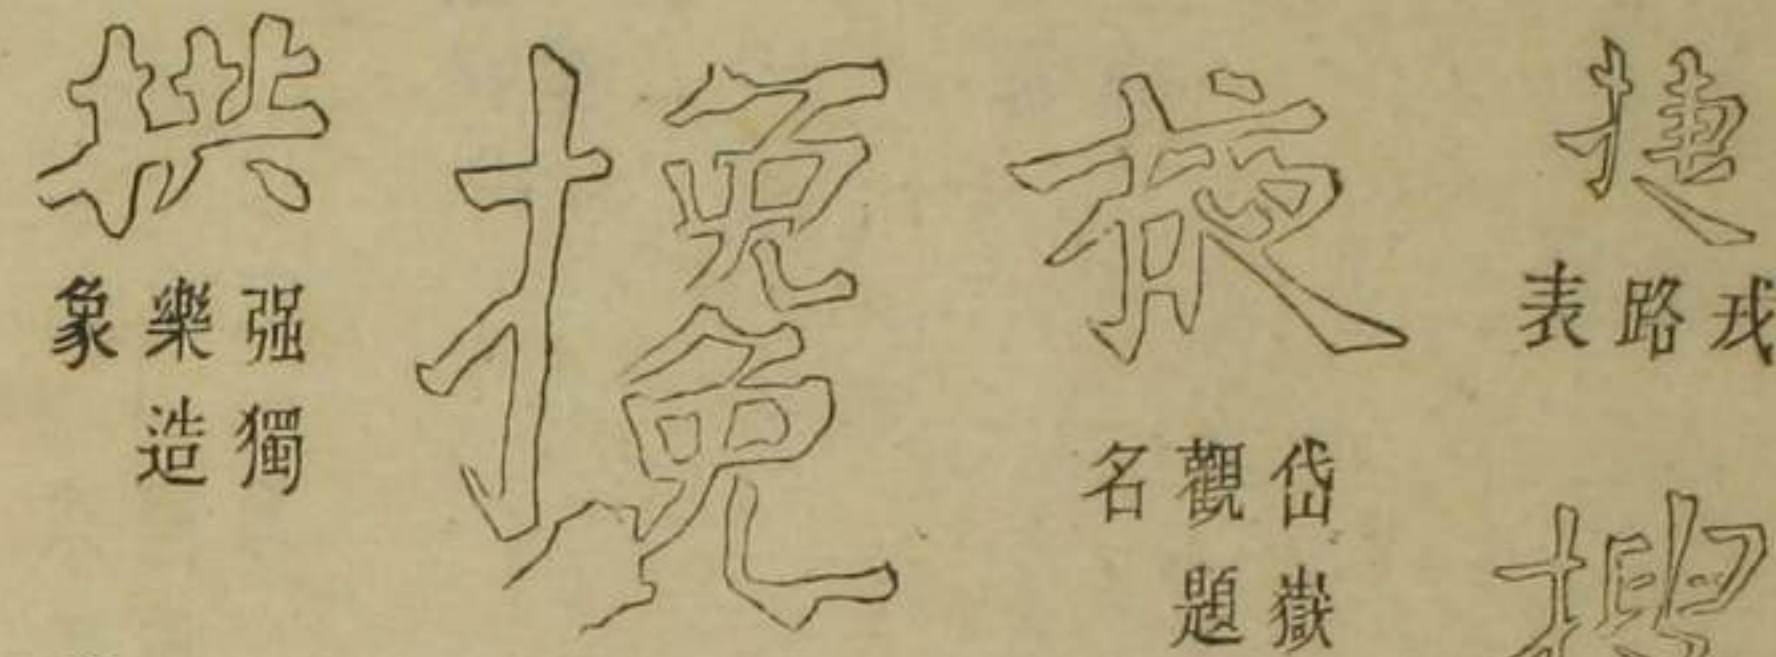 捷
戎路表
掖
岱嶽
觀題
名
攙
拱
强獨
樂造
象